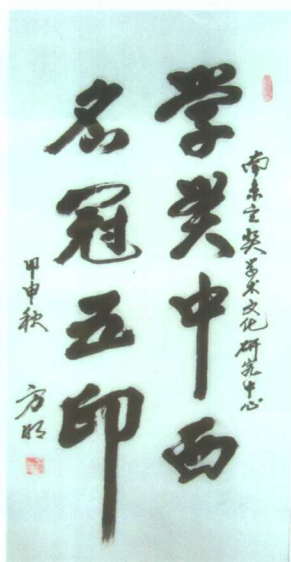 南京玄奘学术文化研究中心
学贯中西
名冠五印
甲申秋
方明